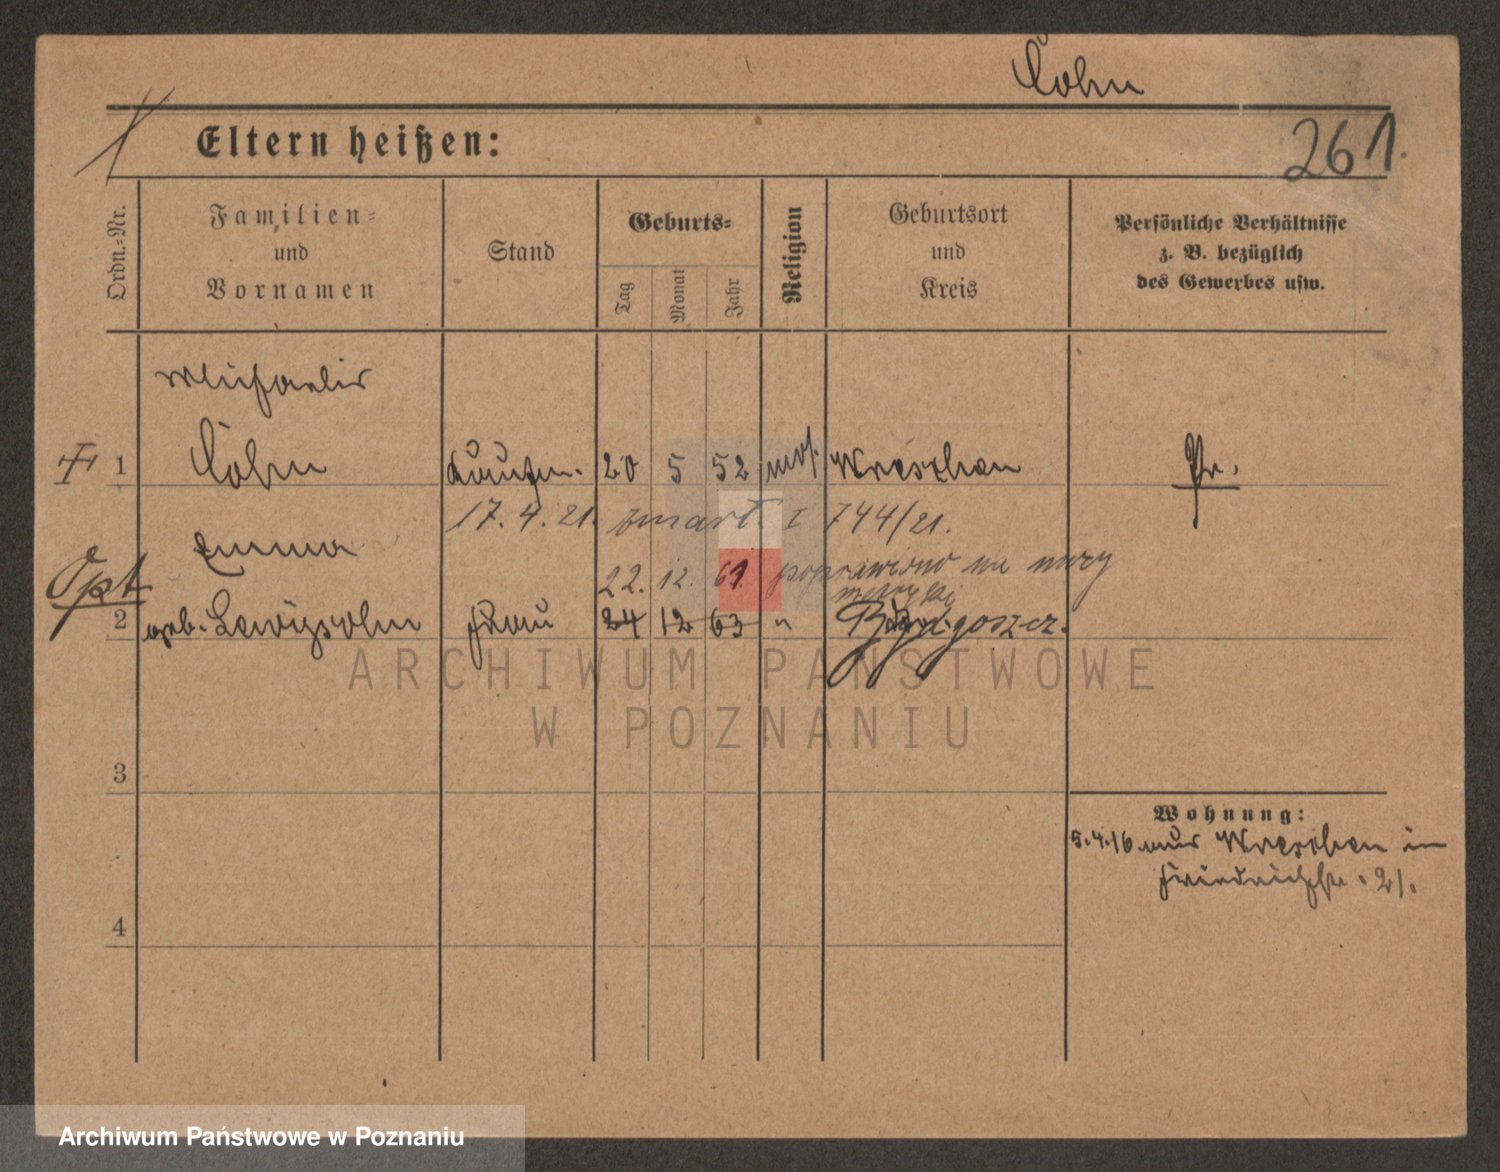 Cohn
Eltern heißen:
261.
Ordn.=Nr.
Familien=
und
Vornamen
Stand
Geburts=
Tag
Monat
Jahr
Religion
Geburtsort
und
Kreis
Persönliche Verhältnisse
z. B. bezüglich
des Gewerbes usw.
Michaelis
1 Cohn Kaufm. 20 5 52 mos. Wreschen Pr.
17. 4. 21. zmarł I 744/21.
Emma
Opt
22. 12. 61. poprawiono na mocy
metryki
2 geb. Lewissohn Frau 24 12 63 " Bydgoszcz.
3
Wohnung:
5.4.16 aus Wreschen in
Friedrichstr. 21.
4
ARCHIWUM PAŃSTWOWE
W POZNANIU
Archiwum Państwowe w Poznaniu